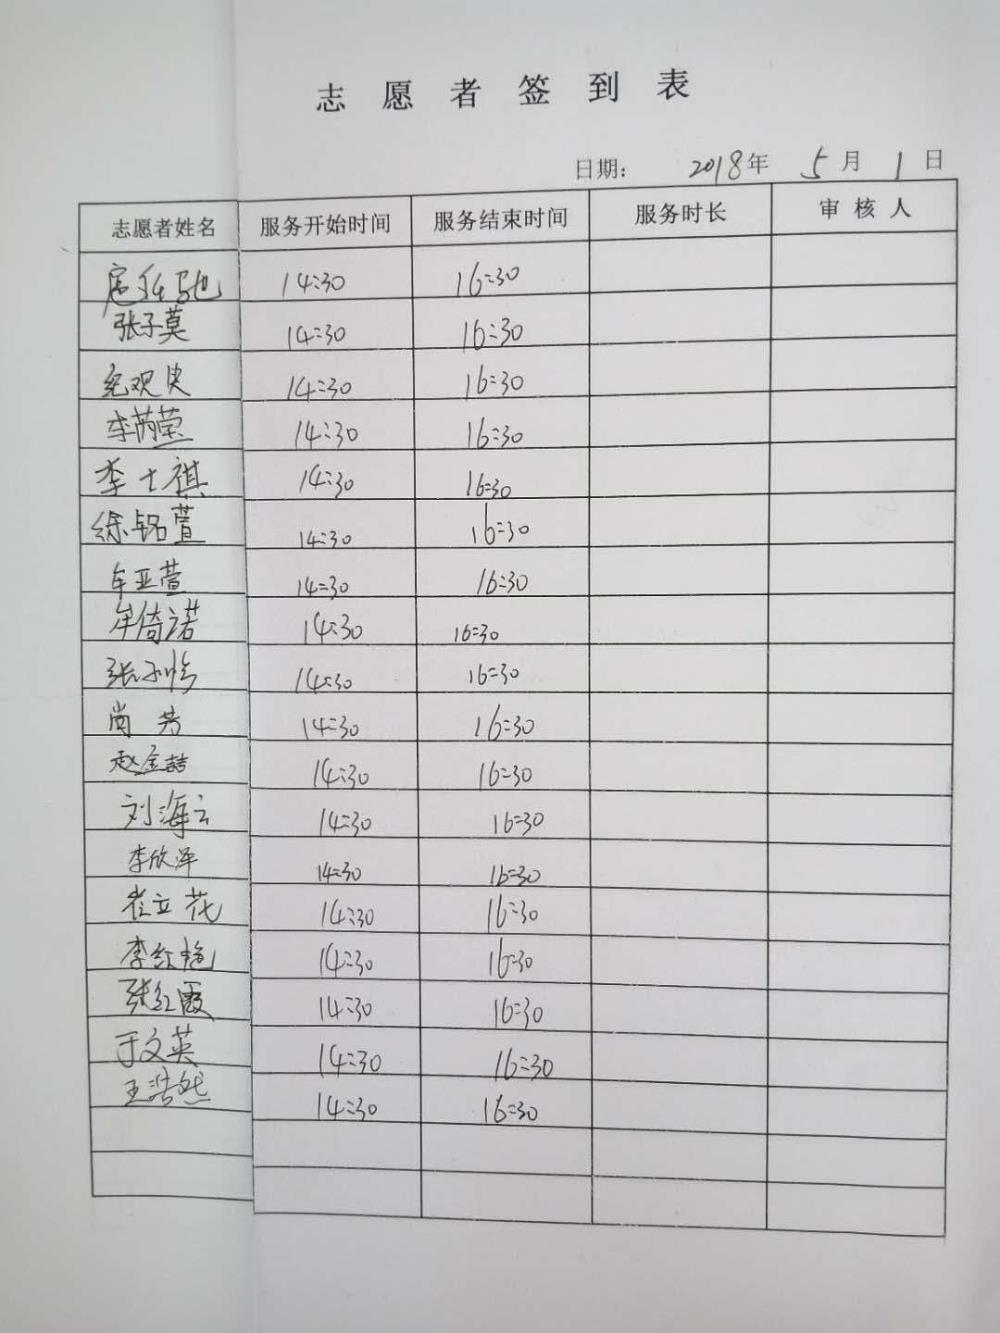 志愿者签到表
日期: 2018年 5月 1日
志愿者姓名 服务开始时间 服务结束时间 服务时长 审核人
14:30 16:30
张子莫 14:30 16:30
14:30 16:30
李芮莹 14:30 16:30
李士祺 14:30 16:30
徐铭萱 14:30 16:30
牟亚萱 14:30 16:30
牟倚诺 14:30 16:30
张 14:30 16:30
尚芳 14:30 16:30
赵金喆 14:30 16:30
刘海云 14:30 16:30
李欣泽 14:30 16:30
崔立花 14:30 16:30
李红艳 14:30 16:30
张红霞 14:30 16:30
于文英 14:30 16:30
王浩然 14:30 16:30